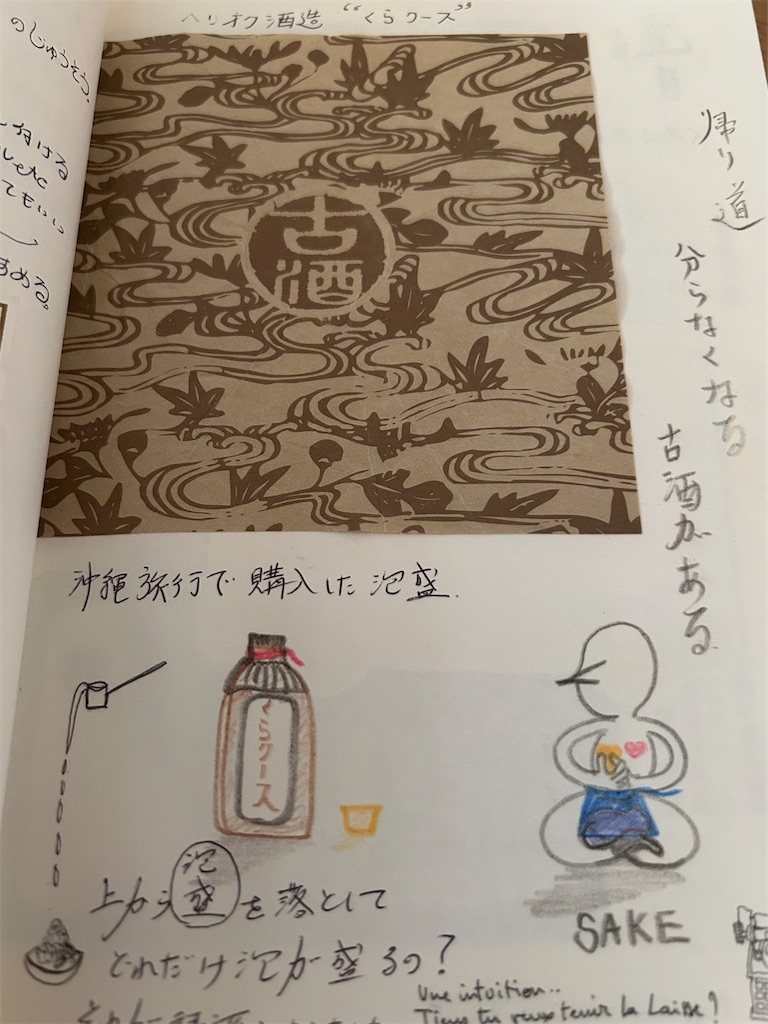 ヘリオク酒造 "くらクース"
のじゅうそう、
付ける
etc
てもいい
すめる。
古酒
帰り道
分らなくなる
古酒がある
沖縄旅行で購入した泡盛.
くらクース
上から泡盛を落として
どれだけ泡が盛るの?
SAKE
Une intuition..
Tiens tu veux tenir la Laisse?